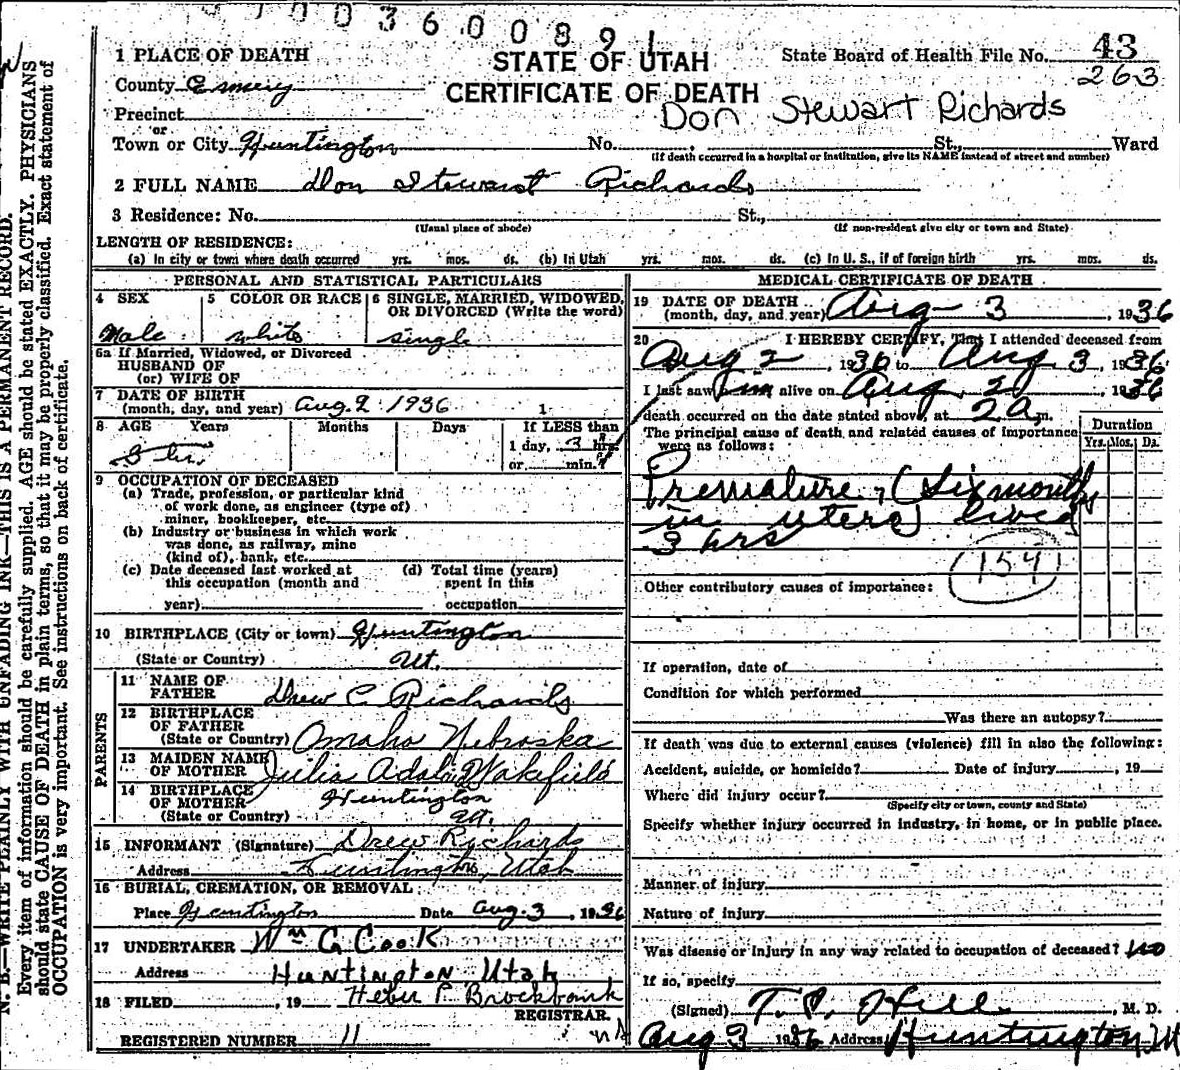 0 0 3 6 0 0 8 9 1
STATE OF UTAH
CERTIFICATE OF DEATH
State Board of Health File No. 43
263
Don Stewart Richards
1 PLACE OF DEATH
County Emery
Precinct
or
Town or City Huntington No. St., Ward
(If death occurred in a hospital or institution, give its NAME instead of street and number)
2 FULL NAME Don Stewart Richards
3 Residence: No. St.,
(Usual place of abode) (If non-resident give city or town and State)
LENGTH OF RESIDENCE:
(a) In city or town where death occurred yrs. mos. ds. (b) In Utah yrs. mos. ds. (c) In U. S., if of foreign birth yrs. mos. ds.
PERSONAL AND STATISTICAL PARTICULARS
4 SEX
Male
5 COLOR OR RACE
white
6 SINGLE, MARRIED, WIDOWED, OR DIVORCED (Write the word)
single
6a If Married, Widowed, or Divorced
HUSBAND OF
(or) WIFE OF
7 DATE OF BIRTH
(month, day, and year) Aug. 2 1936
8 AGE Years Months Days If LESS than
1 day, 3 hrs.
or min.?
9 OCCUPATION OF DECEASED
(a) Trade, profession, or particular kind
of work done, as engineer (type of)
miner, bookkeeper, etc.
(b) Industry or business in which work
was done, as railway, mine
(kind of), bank, etc.
(c) Date deceased last worked at
this occupation (month and
year)
(d) Total time (years)
spent in this
occupation
10 BIRTHPLACE (City or town) Huntington
(State or Country) Ut.
PARENTS
11 NAME OF
FATHER Drew C Richards
12 BIRTHPLACE
OF FATHER
(State or Country) Omaha Nebraska
13 MAIDEN NAME
OF MOTHER Julia Wakefield
14 BIRTHPLACE
OF MOTHER Huntington
(State or Country)
15 INFORMANT (Signature) Drew Richards
Address Huntington, Utah
16 BURIAL, CREMATION, OR REMOVAL
Place Huntington Date Aug. 3, 1936
17 UNDERTAKER Wm G Cook
Address Huntington Utah
18 FILED , 19 Heber P. Brockbank
REGISTRAR.
REGISTERED NUMBER 11
MEDICAL CERTIFICATE OF DEATH
19 DATE OF DEATH
(month, day, and year) Aug 3, 1936
20 I HEREBY CERTIFY, That I attended deceased from
Aug 2, 1936 to Aug 3, 1936
I last saw him alive on Aug 2, 1936
death occurred on the date stated above, at 2 a m.
The principal cause of death and related causes of importance
were as follows:
Duration
Yrs. Mos. Ds.
Premature, (Six months
in utero) lived
3 hrs
154
Other contributory causes of importance:
If operation, date of
Condition for which performed
Was there an autopsy?
If death was due to external causes (violence) fill in also the following:
Accident, suicide, or homicide? Date of injury , 19
Where did injury occur?
(Specify city or town, county and State)
Specify whether injury occurred in industry, in home, or in public place.
Manner of injury
Nature of injury
Was disease or injury in any way related to occupation of deceased? no
If so, specify
(Signed) T. P. Hill, M. D.
Aug 3 1936 Address Huntington, Ut
N. B.—WRITE PLAINLY WITH UNFADING INK—THIS IS A PERMANENT RECORD.
Every item of information should be carefully supplied. AGE should be stated EXACTLY. PHYSICIANS
should state CAUSE OF DEATH in plain terms, so that it may be properly classified. Exact statement of
OCCUPATION is very important. See instructions on back of certificate.